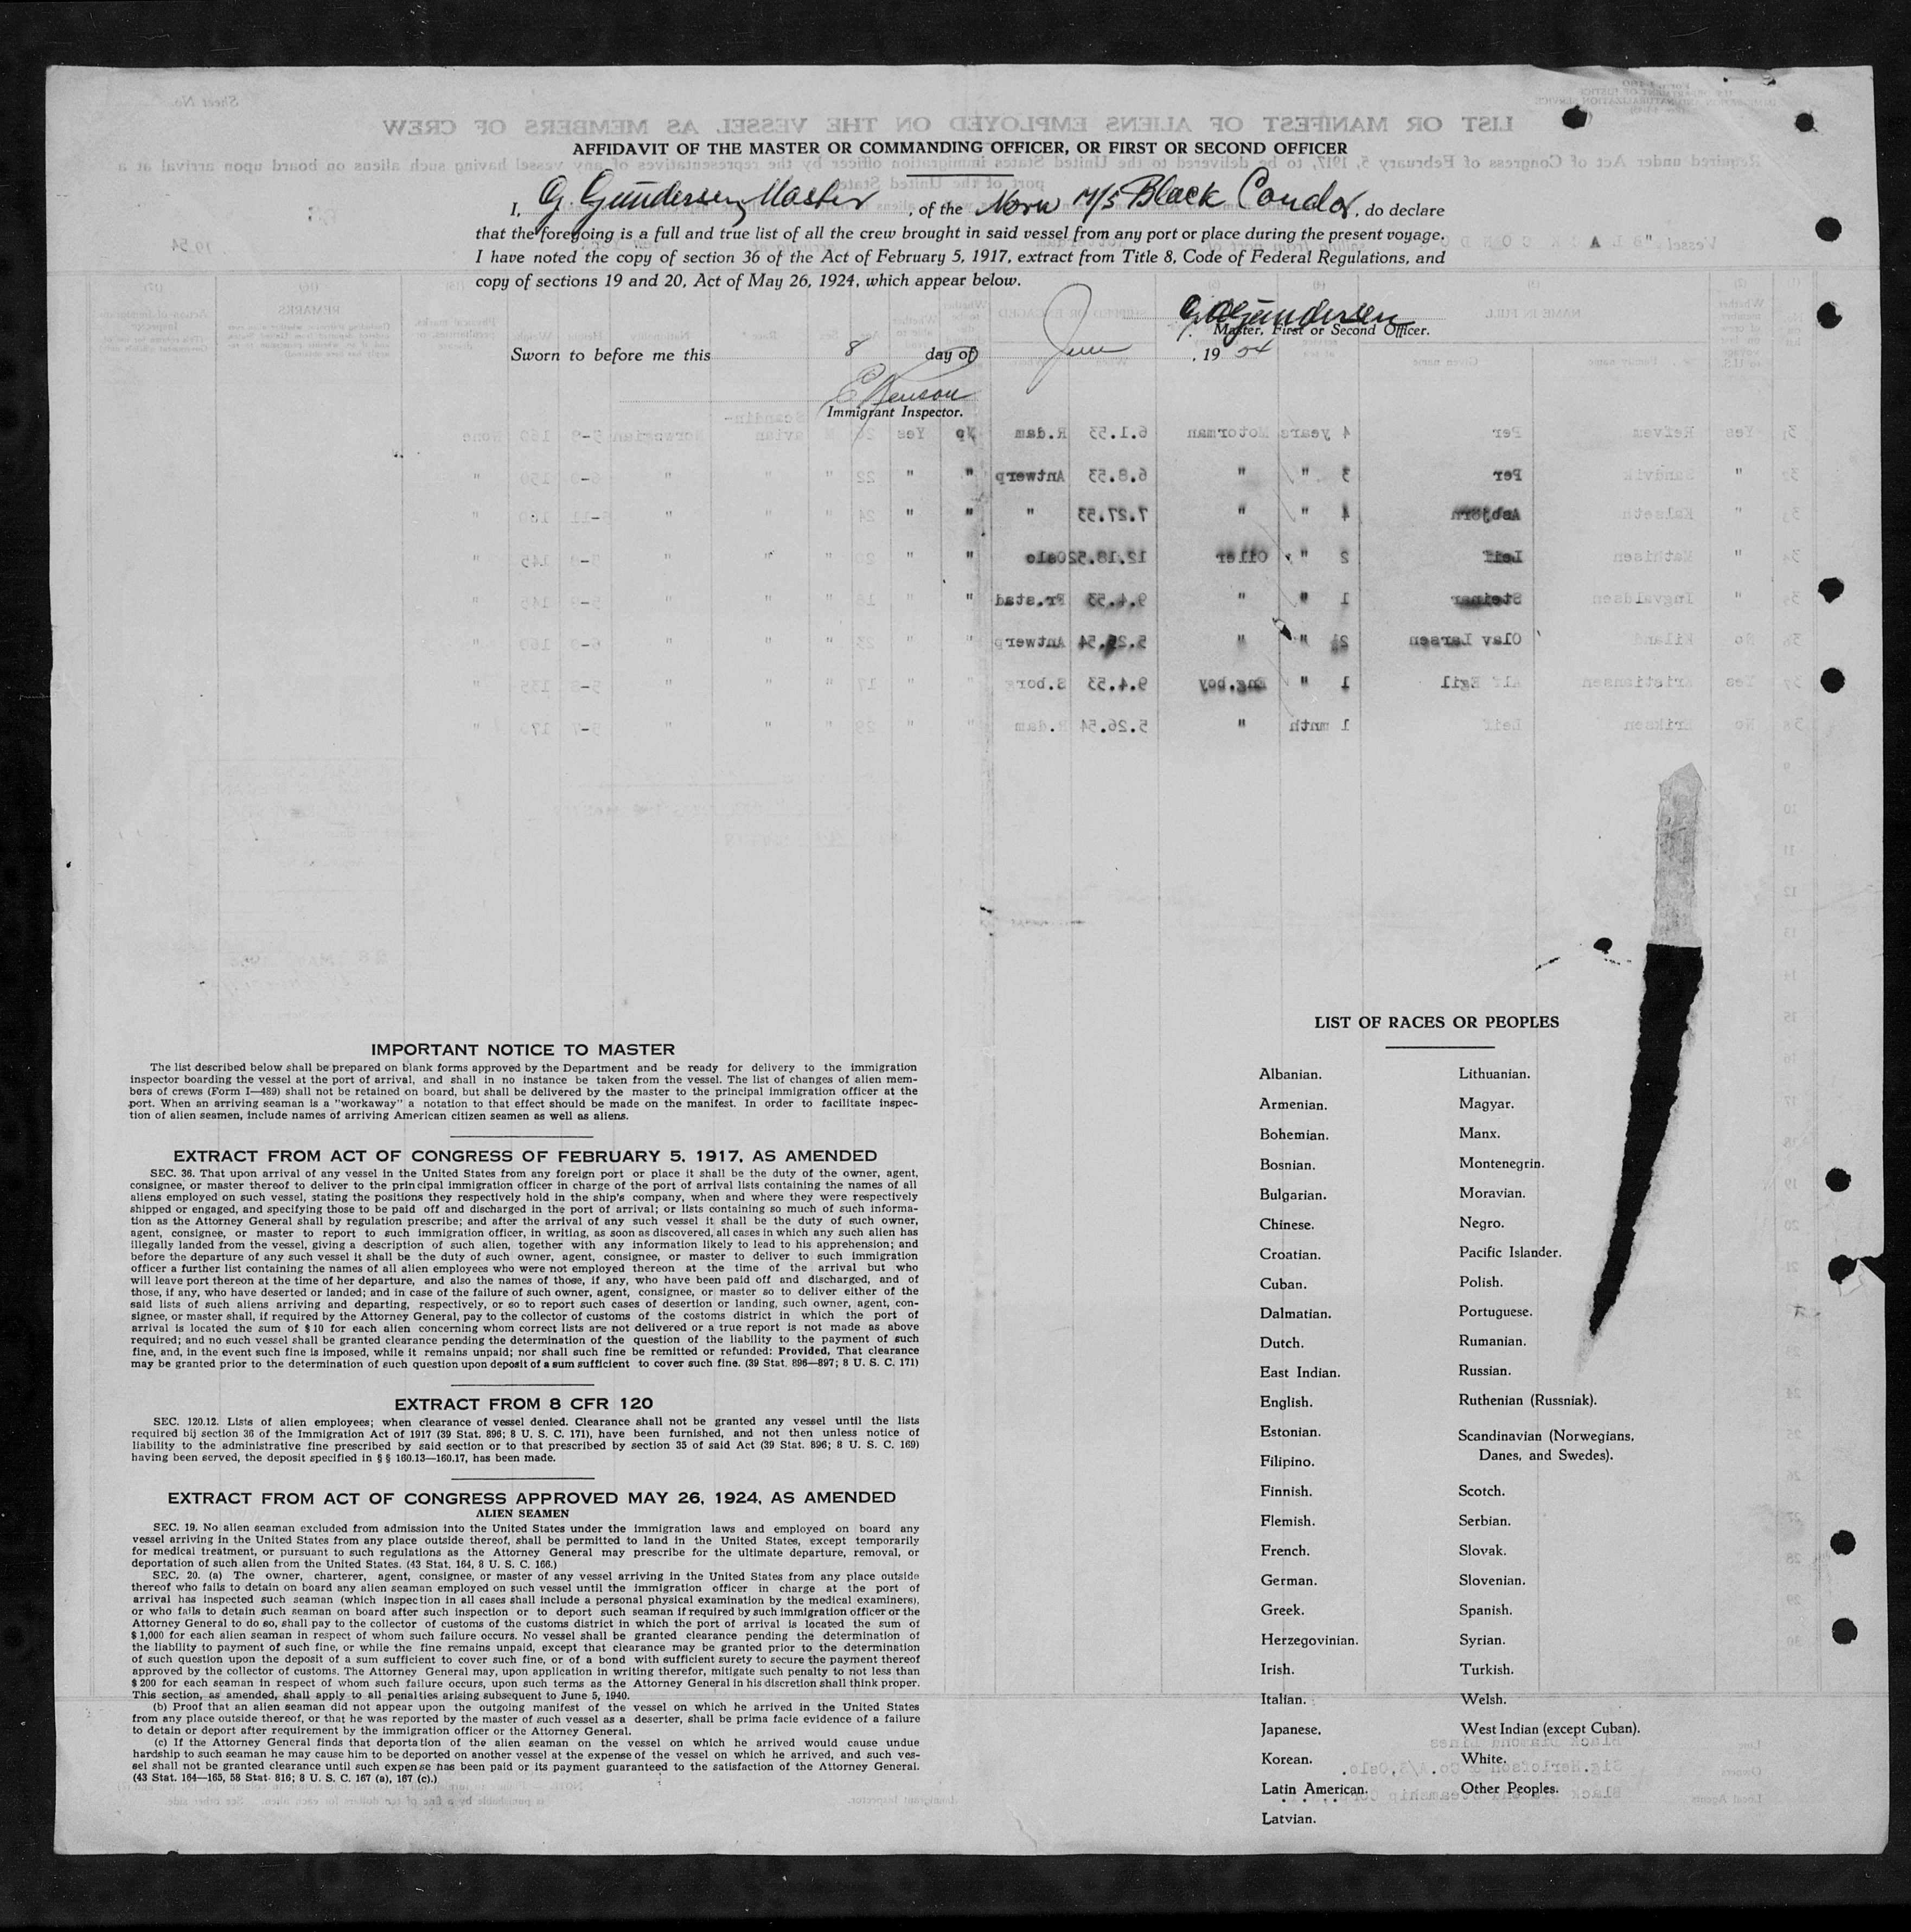 AFFIDAVIT OF THE MASTER OR COMMANDING OFFICER, OR FIRST OR SECOND OFFICER
I, G. Gundersen, Master, of the Norw M/S Black Condor, do declare
that the foregoing is a full and true list of all the crew brought in said vessel from any port or place during the present voyage.
I have noted the copy of section 36 of the Act of February 5, 1917, extract from Title 8, Code of Federal Regulations, and
copy of sections 19 and 20, Act of May 26, 1924, which appear below.
G. Gundersen
Master, First or Second Officer.
Sworn to before me this 8 day of June, 19 54
E Benson
Immigrant Inspector.
IMPORTANT NOTICE TO MASTER
The list described below shall be prepared on blank forms approved by the Department and be ready for delivery to the immigration
inspector boarding the vessel at the port of arrival, and shall in no instance be taken from the vessel. The list of changes of alien mem-
bers of crews (Form I—489) shall not be retained on board, but shall be delivered by the master to the principal immigration officer at the
port. When an arriving seaman is a "workaway" a notation to that effect should be made on the manifest. In order to facilitate inspec-
tion of alien seamen, include names of arriving American citizen seamen as well as aliens.
EXTRACT FROM ACT OF CONGRESS OF FEBRUARY 5, 1917, AS AMENDED
SEC. 36. That upon arrival of any vessel in the United States from any foreign port or place it shall be the duty of the owner, agent,
consignee, or master thereof to deliver to the principal immigration officer in charge of the port of arrival lists containing the names of all
aliens employed on such vessel, stating the positions they respectively hold in the ship's company, when and where they were respectively
shipped or engaged, and specifying those to be paid off and discharged in the port of arrival; or lists containing so much of such informa-
tion as the Attorney General shall by regulation prescribe; and after the arrival of any such vessel it shall be the duty of such owner,
agent, consignee, or master to report to such immigration officer, in writing, as soon as discovered, all cases in which any such alien has
illegally landed from the vessel, giving a description of such alien, together with any information likely to lead to his apprehension; and
before the departure of any such vessel it shall be the duty of such owner, agent, consignee, or master to deliver to such immigration
officer a further list containing the names of all alien employees who were not employed thereon at the time of the arrival but who
will leave port thereon at the time of her departure, and also the names of those, if any, who have been paid off and discharged, and of
those, if any, who have deserted or landed; and in case of the failure of such owner, agent, consignee, or master so to deliver either of the
said lists of such aliens arriving and departing, respectively, or so to report such cases of desertion or landing, such owner, agent, con-
signee, or master shall, if required by the Attorney General, pay to the collector of customs of the costoms district in which the port of
arrival is located the sum of $10 for each alien concerning whom correct lists are not delivered or a true report is not made as above
required; and no such vessel shall be granted clearance pending the determination of the question of the liability to the payment of such
fine, and, in the event such fine is imposed, while it remains unpaid; nor shall such fine be remitted or refunded: Provided, That clearance
may be granted prior to the determination of such question upon deposit of a sum sufficient to cover such fine. (39 Stat. 896—897; 8 U. S. C. 171)
EXTRACT FROM 8 CFR 120
SEC. 120.12. Lists of alien employees; when clearance of vessel denied. Clearance shall not be granted any vessel until the lists
required bij section 36 of the Immigration Act of 1917 (39 Stat. 896; 8 U. S. C. 171), have been furnished, and not then unless notice of
liability to the administrative fine prescribed by said section or to that prescribed by section 35 of said Act (39 Stat. 896; 8 U. S. C. 169)
having been served, the deposit specified in § § 160.13—160.17, has been made.
EXTRACT FROM ACT OF CONGRESS APPROVED MAY 26, 1924, AS AMENDED
ALIEN SEAMEN
SEC. 19. No alien seaman excluded from admission into the United States under the immigration laws and employed on board any
vessel arriving in the United States from any place outside thereof, shall be permitted to land in the United States, except temporarily
for medical treatment, or pursuant to such regulations as the Attorney General may prescribe for the ultimate departure, removal, or
deportation of such alien from the United States. (43 Stat. 164, 8 U. S. C. 166.)
SEC. 20. (a) The owner, charterer, agent, consignee, or master of any vessel arriving in the United States from any place outside
thereof who fails to detain on board any alien seaman employed on such vessel until the immigration officer in charge at the port of
arrival has inspected such seaman (which inspection in all cases shall include a personal physical examination by the medical examiners),
or who fails to detain such seaman on board after such inspection or to deport such seaman if required by such immigration officer or the
Attorney General to do so, shall pay to the collector of customs of the customs district in which the port of arrival is located the sum of
$1,000 for each alien seaman in respect of whom such failure occurs. No vessel shall be granted clearance pending the determination of
the liability to payment of such fine, or while the fine remains unpaid, except that clearance may be granted prior to the determination
of such question upon the deposit of a sum sufficient to cover such fine, or of a bond with sufficient surety to secure the payment thereof
approved by the collector of customs. The Attorney General may, upon application in writing therefor, mitigate such penalty to not less than
$200 for each seaman in respect of whom such failure occurs, upon such terms as the Attorney General in his discretion shall think proper.
This section, as amended, shall apply to all penalties arising subsequent to June 5, 1940.
(b) Proof that an alien seaman did not appear upon the outgoing manifest of the vessel on which he arrived in the United States
from any place outside thereof, or that he was reported by the master of such vessel as a deserter, shall be prima facie evidence of a failure
to detain or deport after requirement by the immigration officer or the Attorney General.
(c) If the Attorney General finds that deportation of the alien seaman on the vessel on which he arrived would cause undue
hardship to such seaman he may cause him to be deported on another vessel at the expense of the vessel on which he arrived, and such ves-
sel shall not be granted clearance until such expense has been paid or its payment guaranteed to the satisfaction of the Attorney General.
(43 Stat. 164—165, 58 Stat. 816; 8 U. S. C. 167 (a), 167 (c).)
LIST OF RACES OR PEOPLES
Albanian. Lithuanian.
Armenian. Magyar.
Bohemian. Manx.
Bosnian. Montenegrin.
Bulgarian. Moravian.
Chinese. Negro.
Croatian. Pacific Islander.
Cuban. Polish.
Dalmatian. Portuguese.
Dutch. Rumanian.
East Indian. Russian.
English. Ruthenian (Russniak).
Estonian. Scandinavian (Norwegians,
Filipino. Danes, and Swedes).
Finnish. Scotch.
Flemish. Serbian.
French. Slovak.
German. Slovenian.
Greek. Spanish.
Herzegovinian. Syrian.
Irish. Turkish.
Italian. Welsh.
Japanese. West Indian (except Cuban).
Korean. White.
Latin American. Other Peoples.
Latvian.